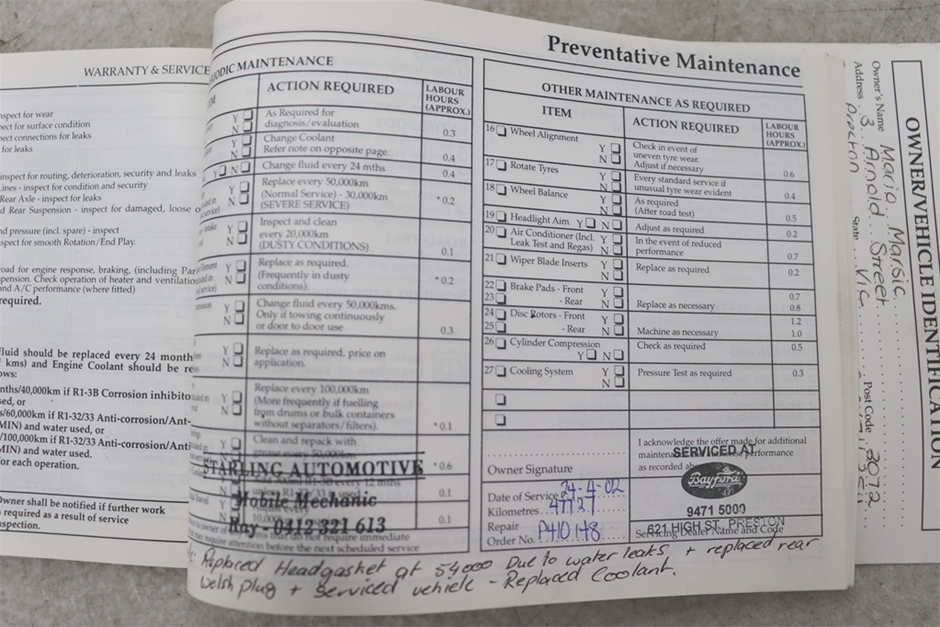 WARRANTY & SERVICE
nspect for wear
pect for surface condition
ect connections for leaks
for leaks
nspect for routing, deterioration, security and leaks
ines - inspect for condition and security
Rear Axle - inspect for leaks
d Rear Suspension - inspect for damaged, loose o
nd pressure (incl. spare) - inspect
spect for smooth Rotation/End Play.
oad for engine response, braking, (including Par
pension. Check operation of heater and ventilatio
and A/C performance (where fitted)
required.
fluid should be replaced every 24 month
kms) and Engine Coolant should be re
ows:
nths/40,000km if R1-3B Corrosion inhibito
sed, or
s/60,000km if R1-32/33 Anti-corrosion/Ant-
MIN) and water used, or
/100,000km if R1-32/33 Anti-corrosion/Anti
MIN) and water used.
or each operation.
Owner shall be notified if further work
s required as a result of service
nspection.
ODIC MAINTENANCE
EM
ACTION REQUIRED
LABOUR
HOURS
(APPROX.)
Y
N
As Required for
diagnosis/evaluation
0.3
Y
N
Change Coolant
Refer note on opposite page.
0.4
Y N
Change fluid every 24 mths
0.4
Y
N
Replace every 50,000km
(Normal Service) - 30,000km
(SEVERE SERVICE)
*0.2
Y
N
Inspect and clean
every 20,000km
(DUSTY CONDITIONS)
0.1
Y
N
Replace as required.
(Frequently in dusty
conditions).
*0.2
Y
N
Change fluid every 50,000kms.
Only if towing continuously
or door to door use
0.3
Y
N
Replace as required, price on
application.
Y
N
Replace every 100,000km
(More frequently if fuelling
from drums or bulk containers
without separators/filters).
*0.1
Y
Clean and repack with
*0.6
STARLING AUTOMOTIVE
0.1
Mobile Mechanic
Ray - 0412 321 613
0.1
require attention before the next scheduled service
Preventative Maintenance
OTHER MAINTENANCE AS REQUIRED
ITEM
ACTION REQUIRED
LABOUR
HOURS
(APPROX.)
16 Wheel Alignment
Y
N
Check in event of
uneven tyre wear.
Adjust if necessary
0.6
17 Rotate Tyres
Y
N
Every standard service if
unusual tyre wear evident
0.4
18 Wheel Balance
Y
N
As required
(After road test)
0.5
19 Headlight Aim Y N
Adjust as required
0.2
20 Air Conditioner (Incl.
Leak Test and Regas)
Y
N
In the event of reduced
performance
0.7
21 Wiper Blade Inserts
Y
N
Replace as required
0.2
22 Brake Pads - Front
23 - Rear
Y
N
Replace as necessary
0.7
0.8
24 Disc Rotors - Front
25 - Rear
Y
N
Machine as necessary
1.2
1.0
26 Cylinder Compression
Y N
Check as required
0.5
27 Cooling System
Y
N
Pressure Test as required
0.3
Owner Signature
I acknowledge the offer made for additional
SERVICED AT
as recorded
Bayford
9471 5000
621 HIGH ST. PRESTON
Servicing Dealer Name and Code
Date of Service 24-4-02
Kilometres 47727
Repair
Order No. P410148
Replaced Headgasket at 54000 Due to water leaks + replaced rear
Welsh plug + serviced vehicle - Replaced Coolant.
OWNER/VEHICLE IDENTIFICATION
Owner's Name Maria Marsic
Address 3 Arnold Street
State Vic Post Code 3072